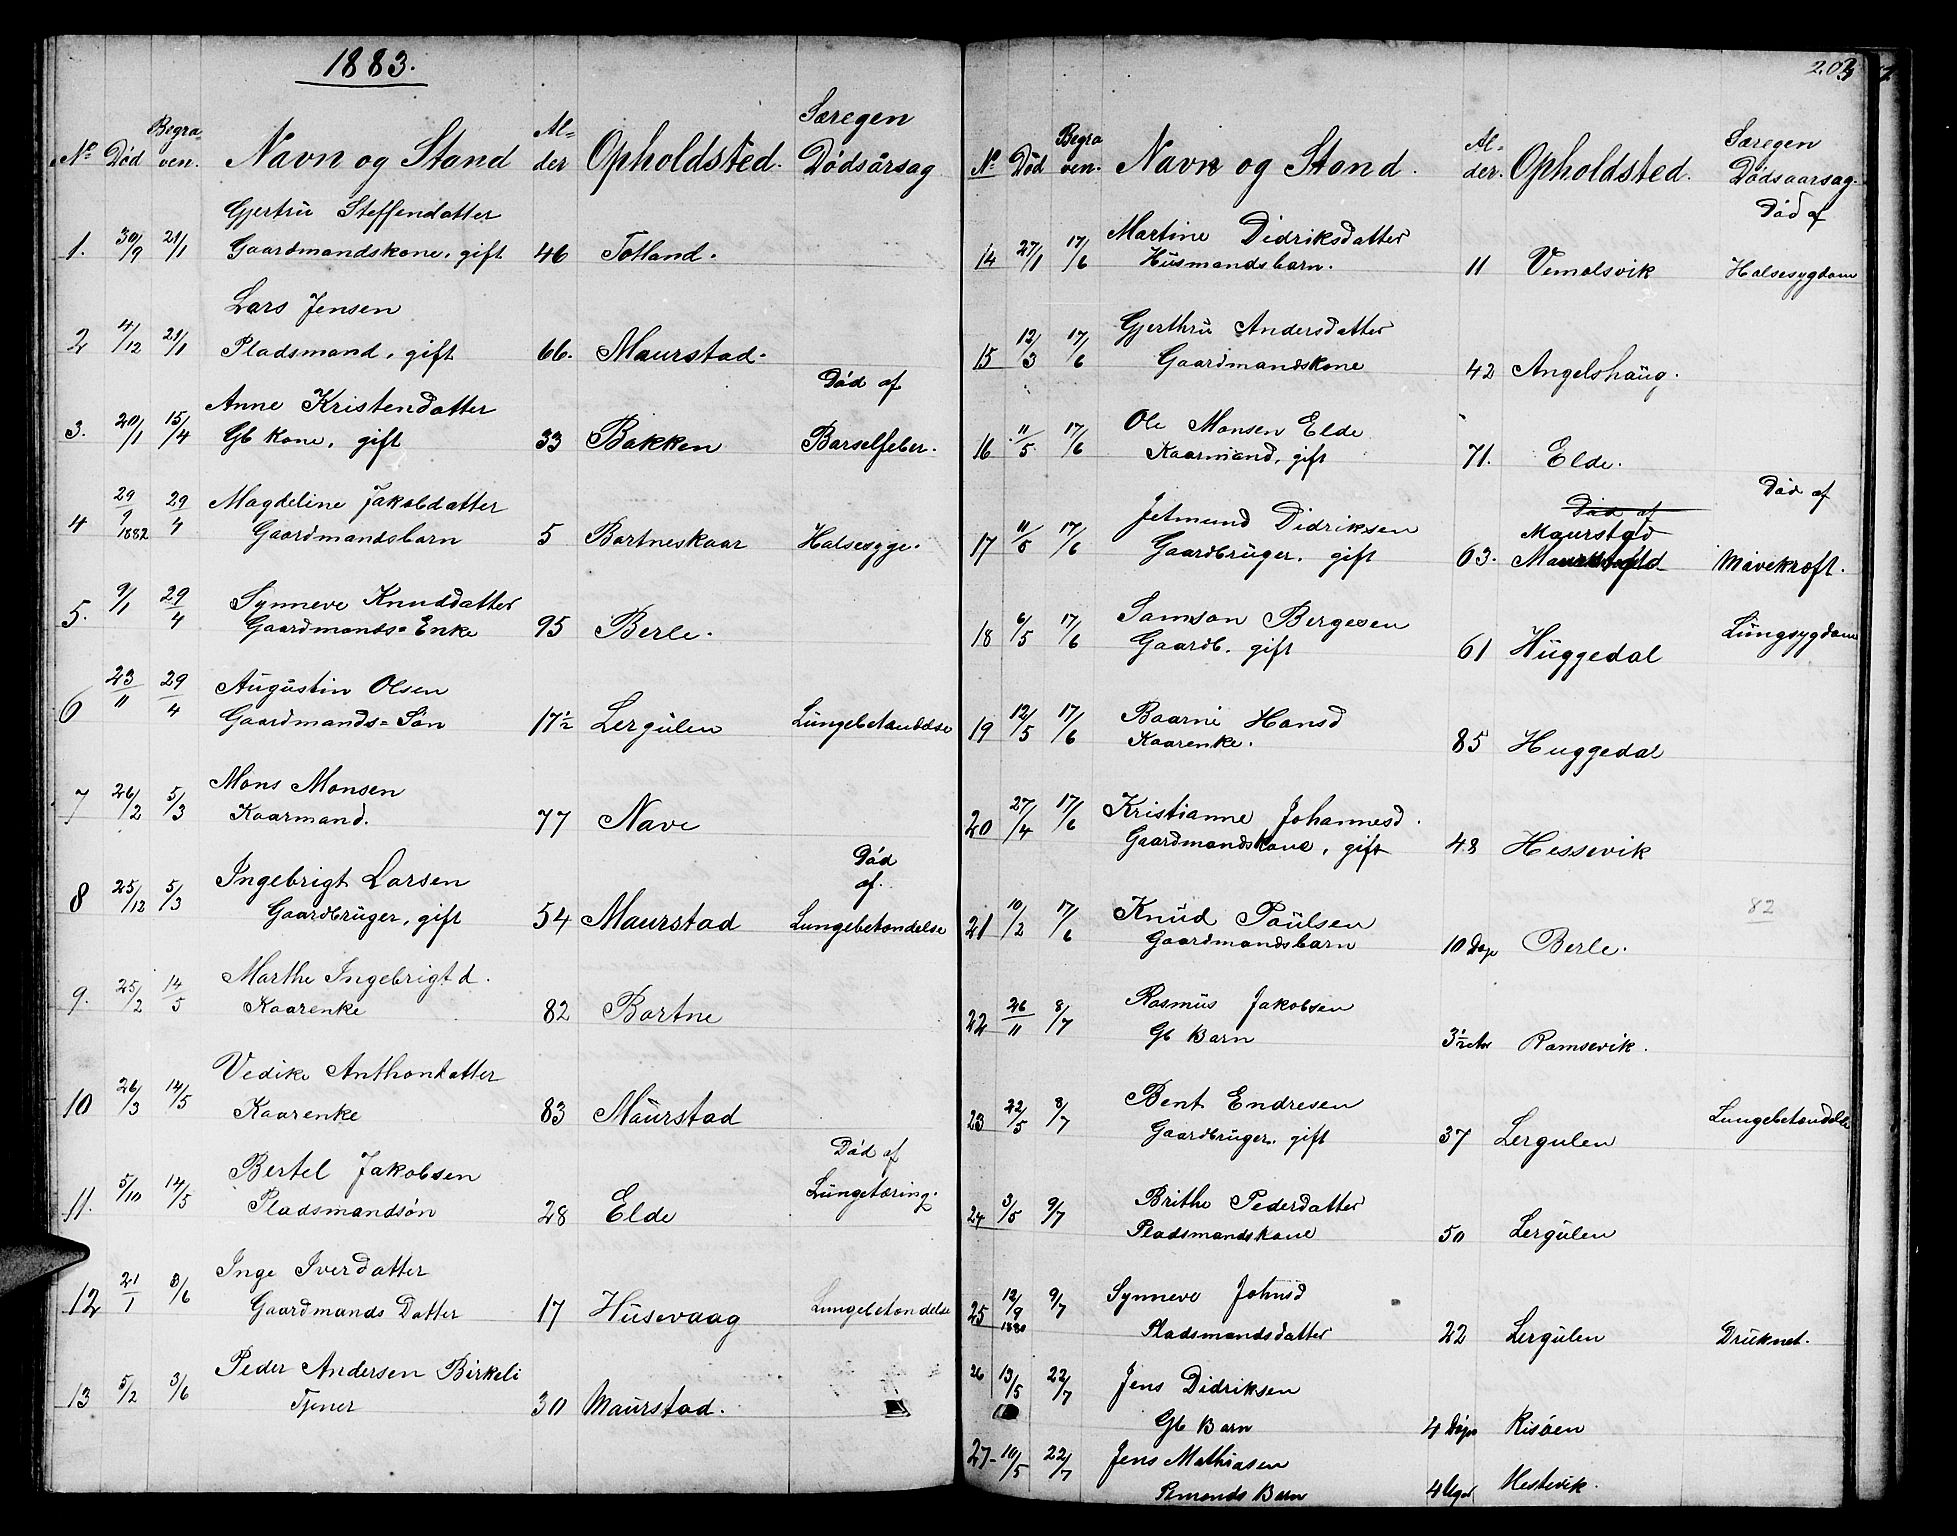 1883.
Nº Død Begraven. Navn og Stand Alder Opholdsted. Særegen Dødsårsag
1. 30/9 21/1 Gjertru Steffendatter
Gaardmandskone, gift 46 Totland.
2 4/12 21/1 Lars Jensen
Pladsmand, gift 66. Maurstad.
3. 20/1 15/4 Anne Kristendatter Død af
Gb Kone, gift 33 Bakken Barselfeber.
4 29/9 1882 29/4 Magdeline Jakobdatter
Gaardmandsbarn 5 Bortneskaar Halsesyge.
5. 9/1 29/4 Synneve Knuddatter
Gaardmands=Enke 95 Berle.
6 23/11 29/4 Augustin Olsen
Gaardmands=Søn 17½ Lergulen Lungebetændelse
7 26/2 5/3 Mons Monsen
Kaarmand. 77 Nave
8 25/12 5/3 Ingebrigt Larsen Død af.
Gaardbruger, gift 54 Maurstad Lungebetændelse
9. 25/2 14/5 Marthe Ingebrigtd.
Kaarenke 82 Bortne
10 26/3 14/5 Vedike Anthondatter
Kaarenke 83 Maurstad
11. 5/10 14/5 Bertel Jakobsen Død af
Pladsmandsøn 28 Elde Lungetæring.
12 21/1 3/6 Inge Iverdatter
Gaardmands Datter 17 Husevaag Lungebetændelse
13 5/2 3/6 Peder Andersen Birkeli
Tjener 30 Maurstad.
203
Nº Død Begraven. Navn og Stand. Alder. Opholdsted. Særegen Dødsaarsag.
14 27/1 17/6 Martine Didriksdatter Død af
Husmandsbarn. 11 Vemelsvik Halsesygdom
15 12/3 17/6 Gjerthru Andersdatter
Gaardmandskone 42 Angelshaug.
16 11/5 17/6 Ole Monsen Elde
Kaarmand, gift 71. Elde.
17 11/6 17/6 Jetmund Didriksen Død af Død af
Maurstad
Gaardbruger, gift 63. Mavekræft.
18 6/5 17/6 Samson Bergesen
Gaardb. gift 61 Huggedal Lungsygdom
19 12/5 17/6 Baarni Hansd
Kaarenke. 85 Huggedal
20 27/4 17/6 Kristianne Johannesd.
Gaardmandskone, gift 48 Hessevik
21 10/2 17/6 Knud Paulsen 82
Gaardmandsbarn 10 Dage Berle.
22 26/11 8/7 Rasmus Jakobsen
Gb Barn 3½ Ramsevik.
23 22/5 8/7 Bent Endresen
Gaardbruger, gift 37 Lergulen Lungebetændelse
24 3/5 9/7 Brithe Pederdatter
Pladsmandskone 50 Lergulen
25 12/9 1880 9/7 Synneve Johnsd
Pladsmandsdatter 22 Lergulen Druknet.
26 13/5 22/7 Jens Didriksen
Gb Barn 4 Dage Risøen
27- 10/5 22/7 Jens Mathiasen
Plmands Barn 4 Uger Hestevik.